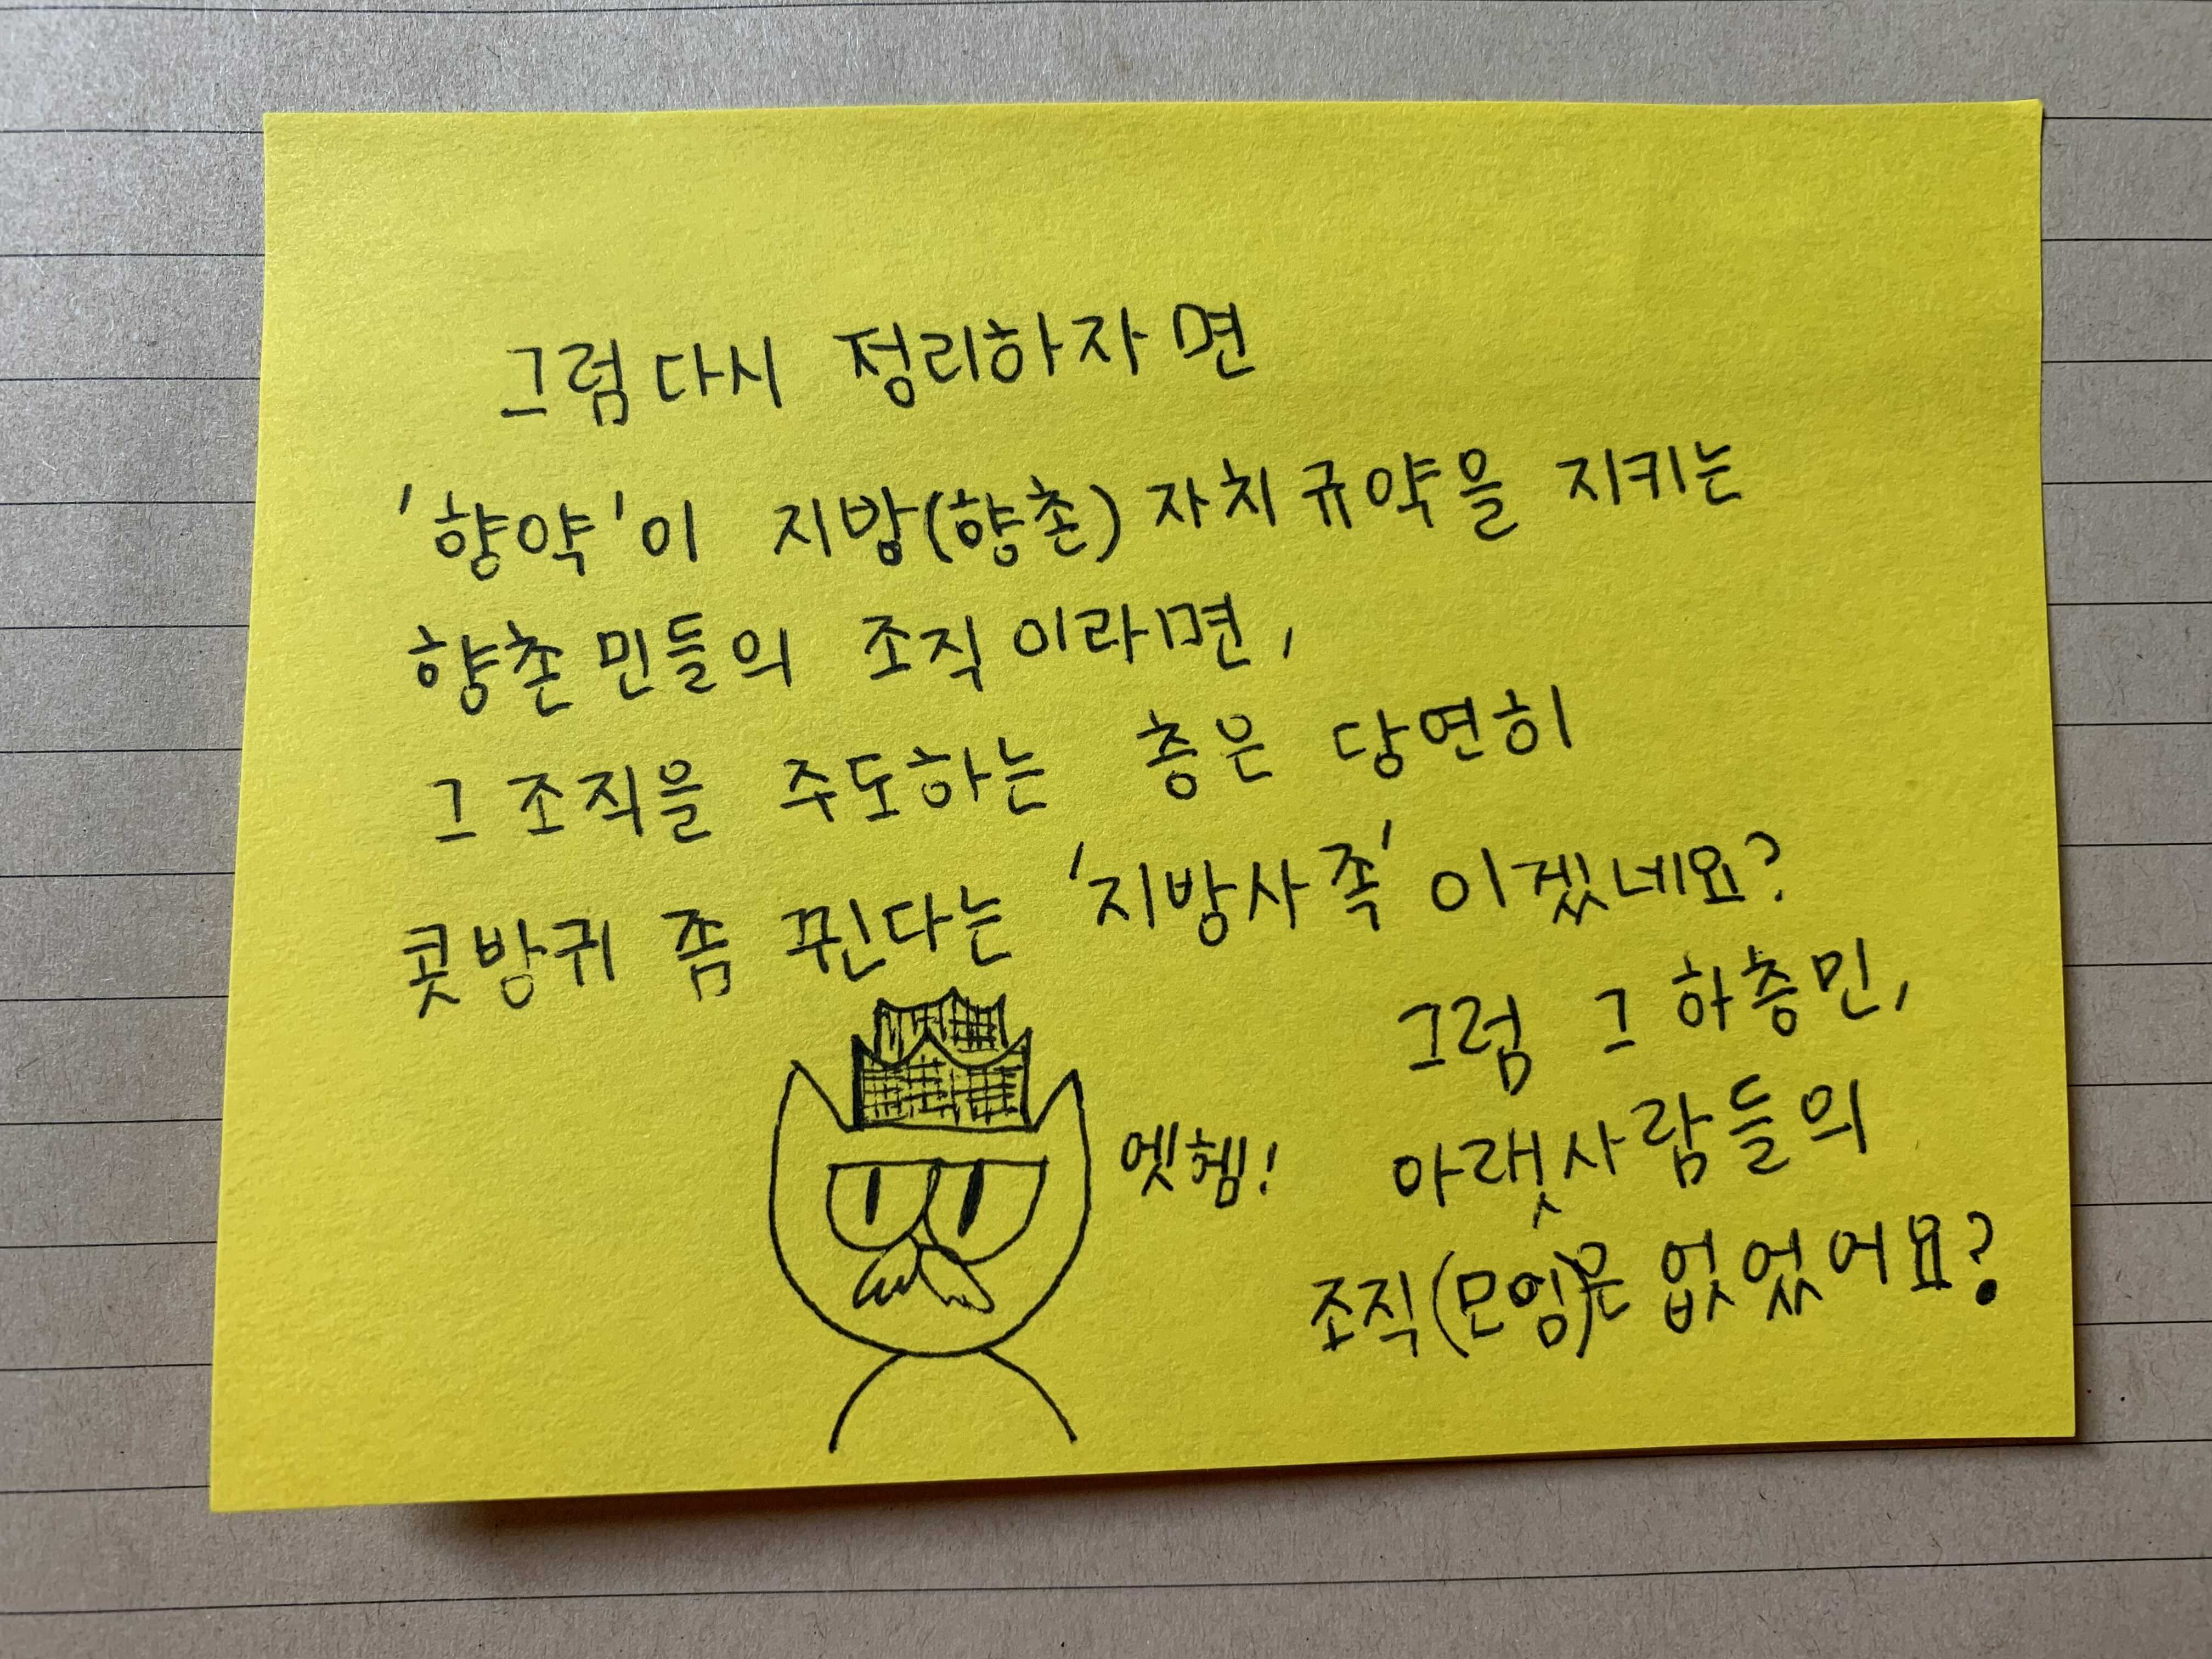 그럼 다시 정리하자면
'향약'이 지방(향촌) 자치규약을 지키는
향촌민들의 조직이라면,
그 조직을 주도하는 층은 당연히
콧방귀 좀 뀐다는 '지방사족'이겠네요?
엣헴!
그럼 그 하층민,
아랫사람들의
조직(모임)은 없었어요?